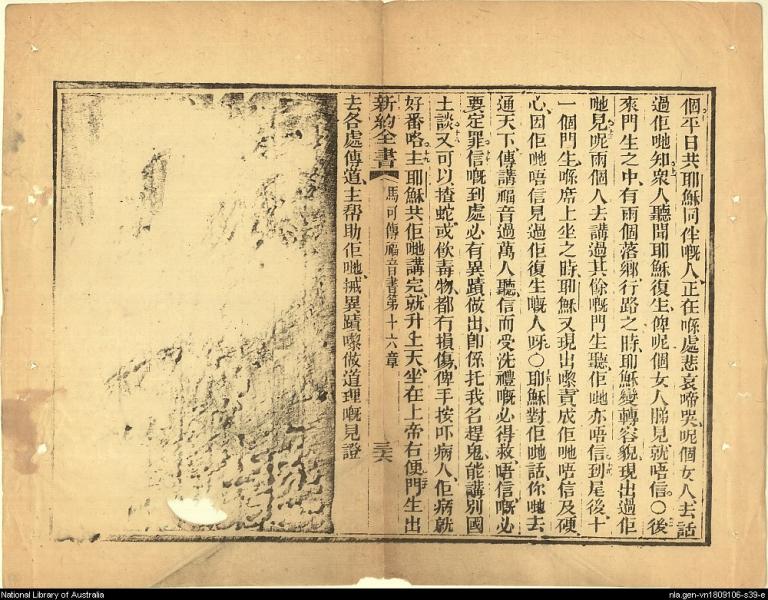 個平日共耶穌同伴嘅人、正在喺處悲哀啼哭、呢個女人、去話
過佢哋知、衆人聽聞耶穌復生、俾呢個女人睇見、就唔信、〇後
來門生之中、有兩個落鄉行路之時、耶穌變轉容貌、現出過佢
哋見、呢兩個人去講過其餘嘅門生聽、佢哋亦唔信、到尾後、十
一個門生、喺席上坐之時、耶穌又現出嚟、責成佢哋唔信及硬
心、因佢哋唔信見過佢復生嘅人呀、〇耶穌對佢哋話、你哋去
通天下、傳講福音過萬人聽、信而受洗禮嘅、必得救、唔信嘅、必
要定罪、信嘅到處必有異蹟做出、卽係托我名趕鬼、能講別國
土談、又可以揸蛇、或飲毒物、都冇損傷、俾手按吓病人、佢病就
好番咯、主耶穌共佢哋講完、就升上天、坐在上帝右便、門生出
新約全書 馬可傳福音書第十六章 三六
去各處傳道、主帮助佢哋、搣異蹟嚟做道理嘅見證
National Library of Australia
nla.gen-vn1809106-s39-e